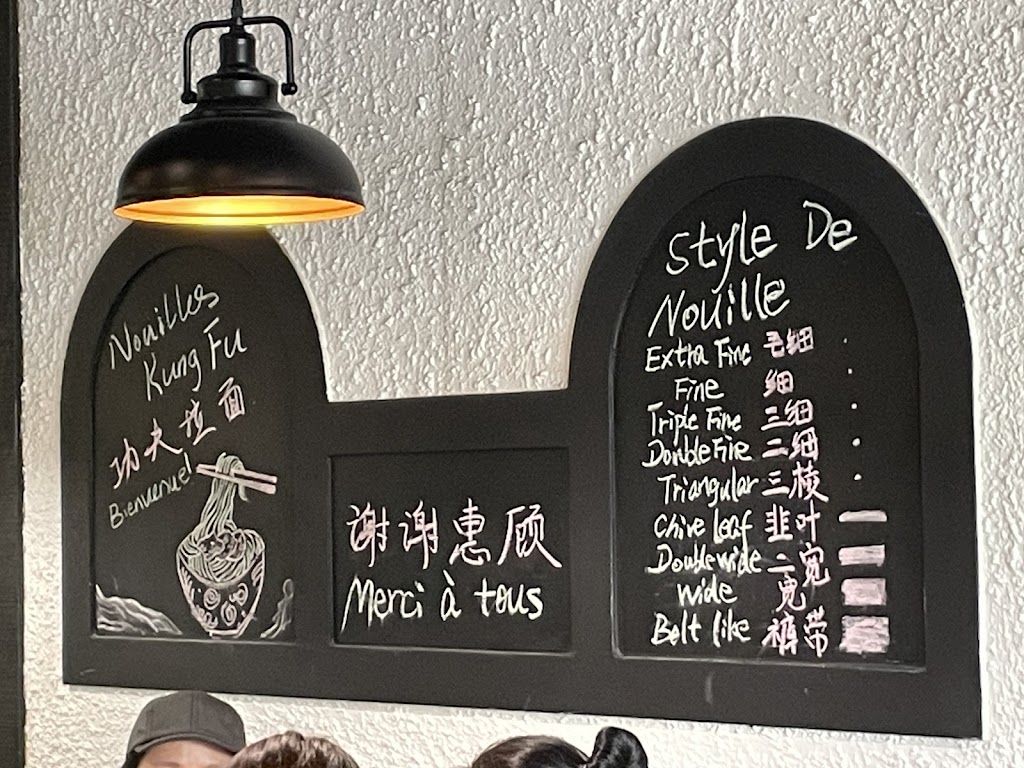 Nouilles
Kung Fu
功夫拉面
Bienvenue!
谢谢惠顾
Merci à tous
Style De
Nouille
Extra Fine 毛细
Fine 细
Triple Fine 三细
Double Fine 二细
Triangular 三棱
Chive leaf 韭叶
Double wide 二宽
wide 宽
Belt like 裤带